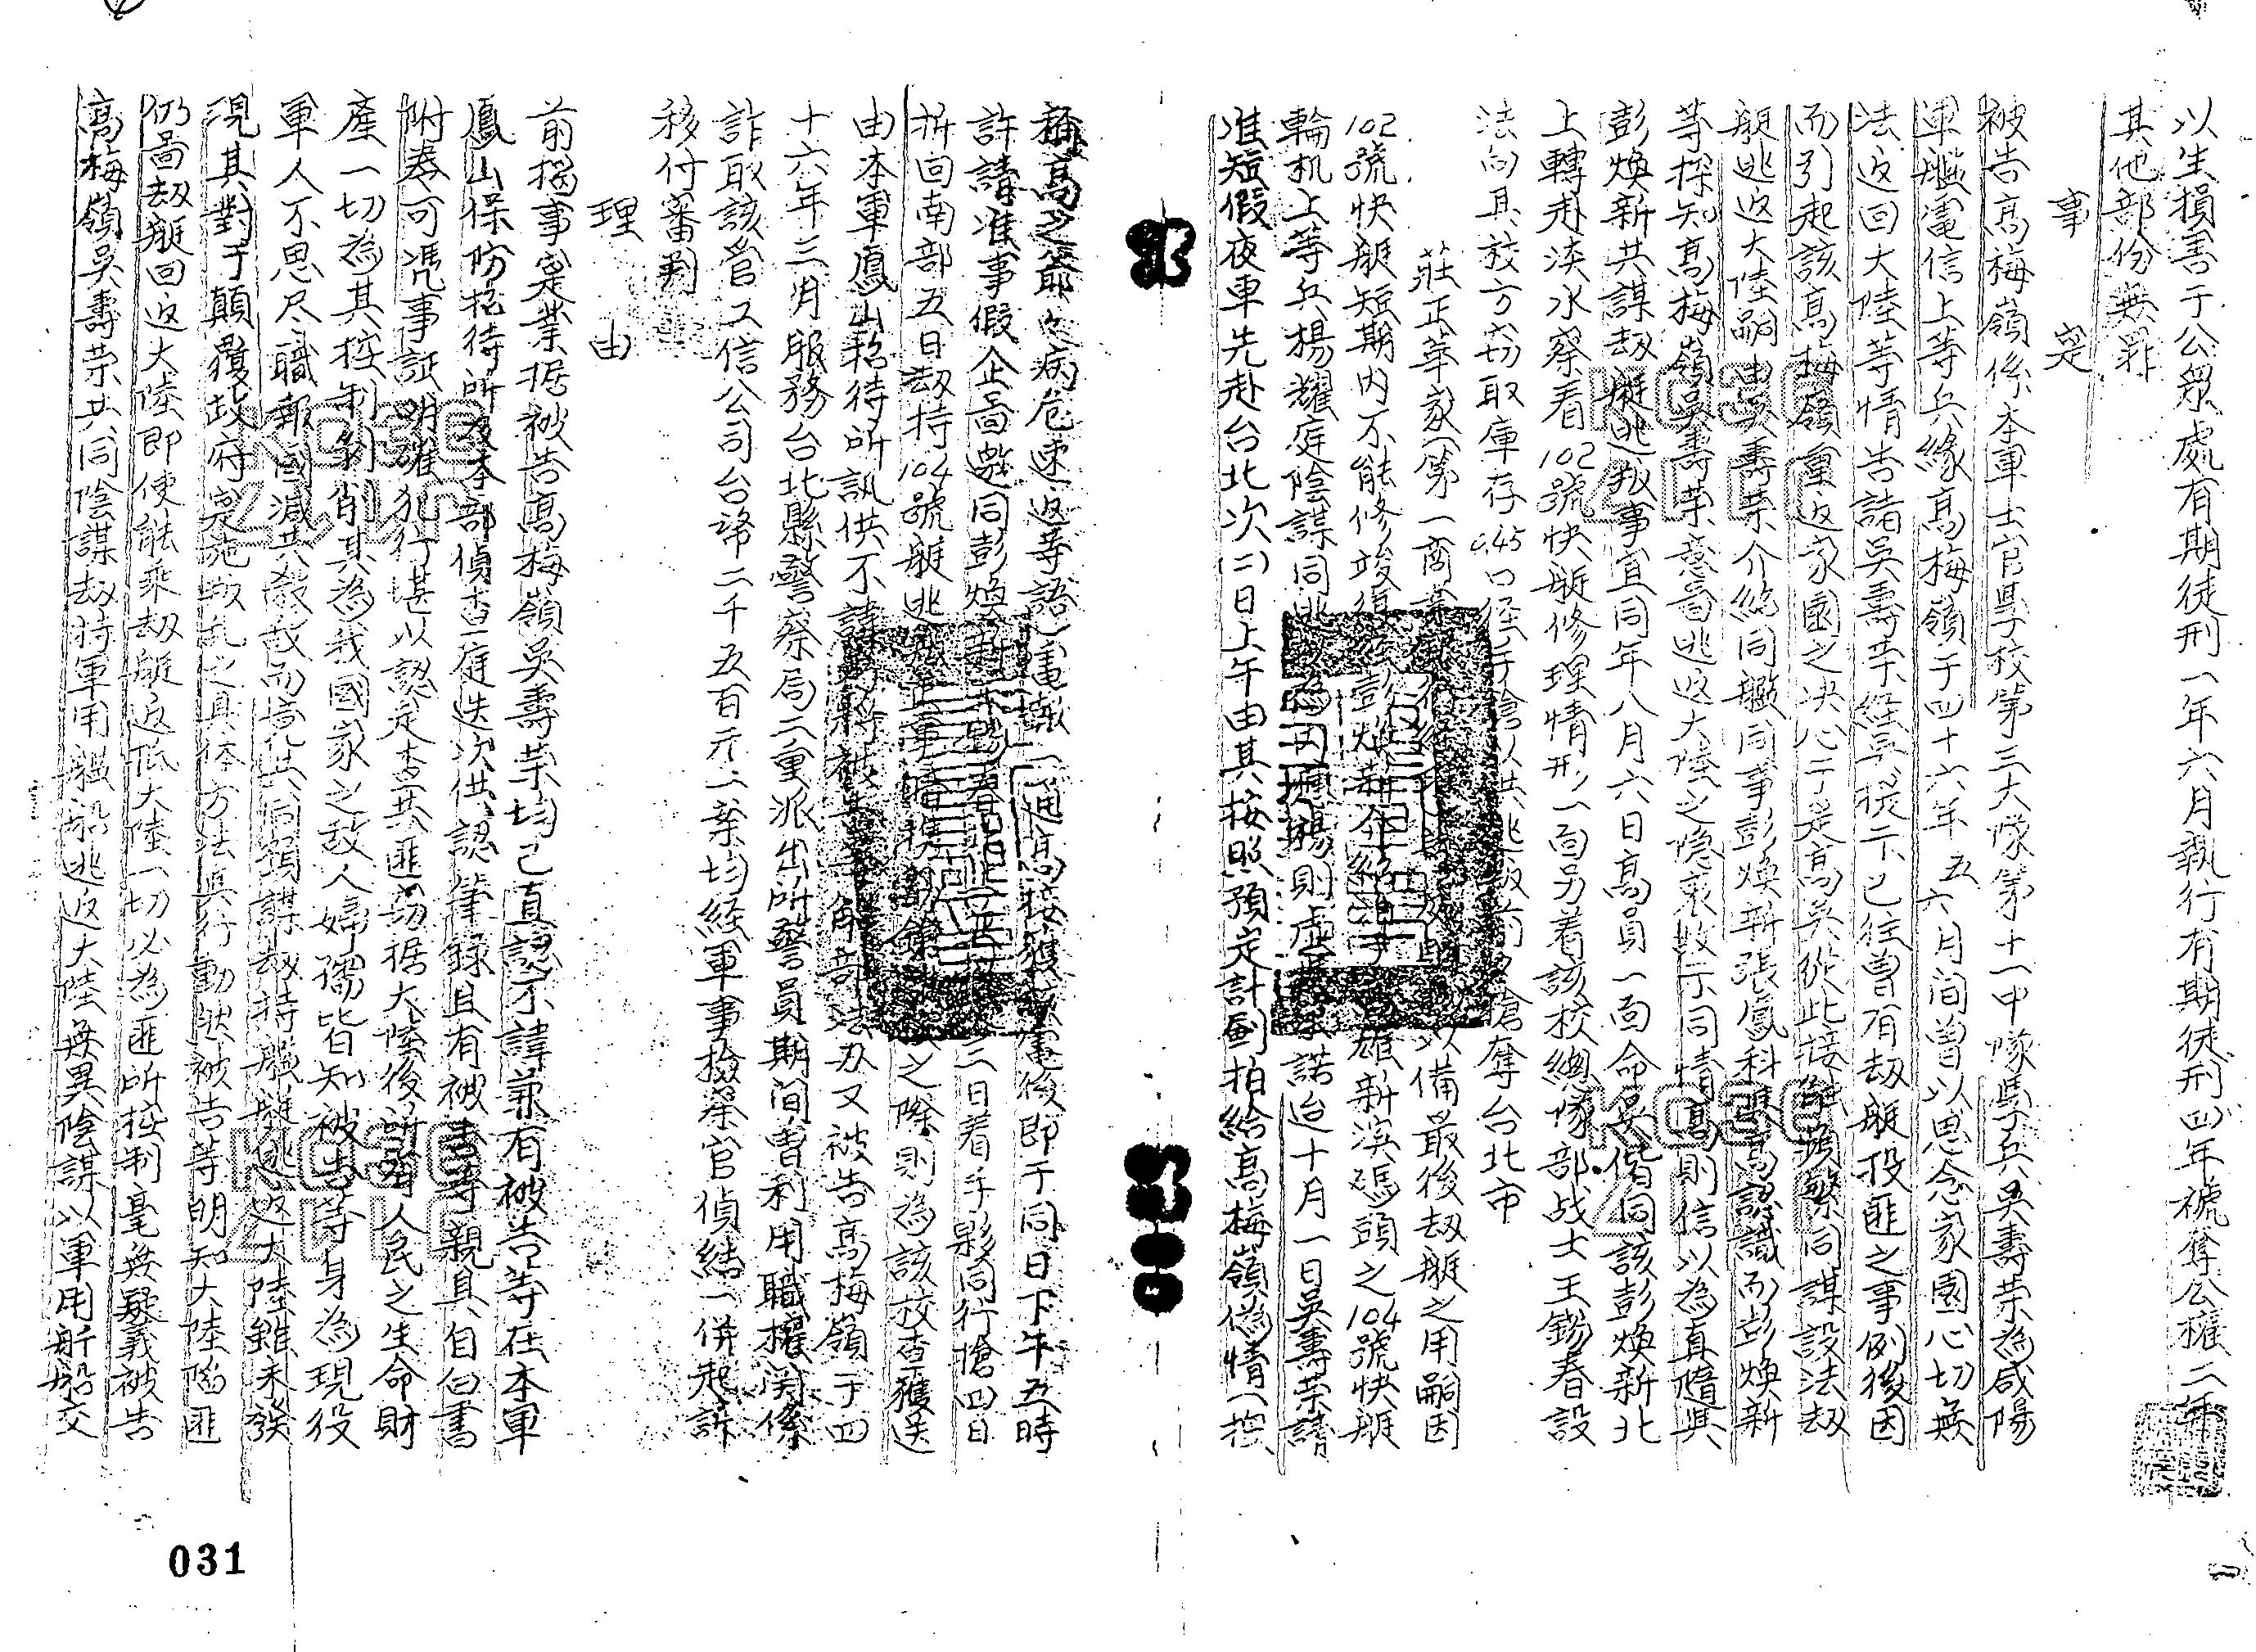 以生損害于公眾處有期徒刑一年六月執行有期徒刑四年褫奪公權二年
其他部份無罪
事 寔
被告高梅嶺係本軍士官學校第三大隊第十一中隊學兵吳壽荣為咸陽
軍艦電信上等兵緣高梅嶺于四十六年五六月间曾以思念家園心切無
法返回大陸等情告諸吳壽荣經吳提示已往曾有刼艇投匪之事例後因
而引起該高梅嶺重返家園之决心于是高吳從此接觸頻繁同謀設法刼
艇逃返大陸嗣由吳壽荣介紹同艦同事彭煥新張鳳科與高認識而彭煥新
等探知高梅嶺吳壽荣意昌逃返大陸之隐衷敗示同情高則信以為真隨與
彭煥新共謀刼艇逃叛事宜同年八月六日高員一面命吳偕同該彭煥新北
上轉赴淡水察看102號快艇修理情形一面另着該校總隊部战士王錫春設
法向其校方切取庫存0.45口径手槍以供逃叛前夕槍奪台北市
莊正華家(第一商業 以備最後刼艇之用嗣因
102號快艇短期内不能修竣復經彭煥新 新濱碼頭之104號快艇
輪机上等兵楊耀庭陰謀同逃 楊則虛 承諾迨十月一日吳壽荣請
准短假夜車先赴台北次(二)日上午由其按照預定計劃拍給高梅嶺偽情(按
稱高之爺々病危速返等語)電報一通高接獲該電後即于同日下午五時
許請准事假企啚邀同彭煥新王錫春 三日着手夥同行搶四日
折回南部五日刼持104號艇逃 之際則為該校查獲送
由本軍鳳山招待所訊供不諱 將被告等解部法办又被告高梅嶺于四
十六年三月服務台北縣警察局二重派出所警員期间曾利用職權関係
詐取該管工信公司台幣二千五百元二案均经軍事檢察官偵結一併起訴
移付審判
理 由
前揭事寔業据被告高梅嶺吳壽荣均已直認不諱兼有被告等在本軍
鳳山保防招待所及本部偵查庭迭次供認筆錄且有被告等親具自白書
附卷可凭事証明確犯行堪以認定查共匪窃据大陸後所有人民之生命財
產一切為其控制剝削其為我國家之敌人婦孺皆知被告等身為現役
軍人不思尽忠職報國滅共殺敌而竟共同預謀刼持艦艇逃返大陸雖未發
現其對于顛覆政府寔施叛乱之具体方法與行動然被告等明知大陸陷匪
仍啚刼艇回返大陸即使能乘刼艇返抵大陸一切必為匪所控制毫無疑義被告
高梅嶺吳壽荣共同陰謀刼持軍用艦船逃返大陸無異陰謀以軍用船舶交
031